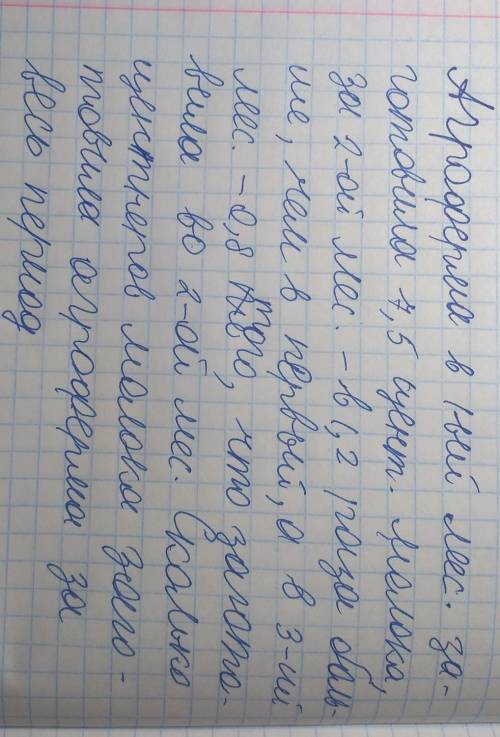 Агроферма в 1ый мес. за-
готовила 7,5 цент. молока
за 2-ой мес. - в 1,2 раза боль-
ше, чем в первый, а в 3-ий
мес. - 0,8 того, что загото-
вила во 2-ой мес. Сколько
центнеров молока заго-
товила агроферма за
весь период